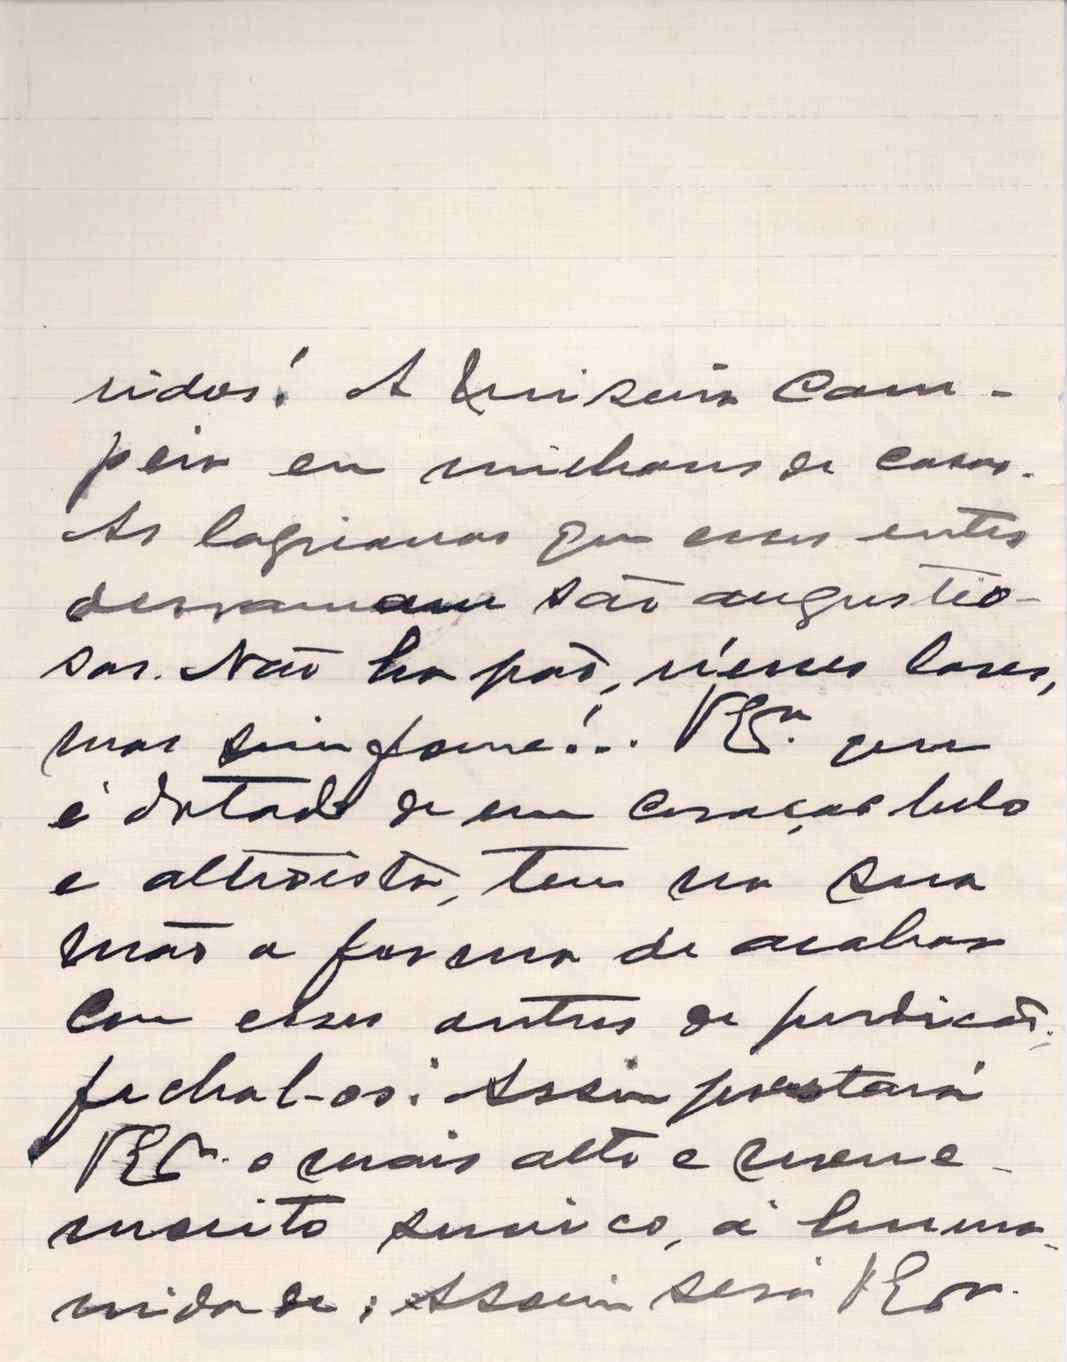 ridos! A miseria cam-
peia em milhares de casas.
As lagrimas que esses entes
derramam são angustio-
sas. Não ha pão, n'esses lares,
mas sim fome!.. V Exª. que
é dotado de um coração bello
e altroista, tem na sua
mão a forma de acabar
com esses antros de perdicão:
fechal-os: Assim prestará
V Exª. o mais alto e bene-
merito servico, á huma-
nidade; Assim será V Exª.